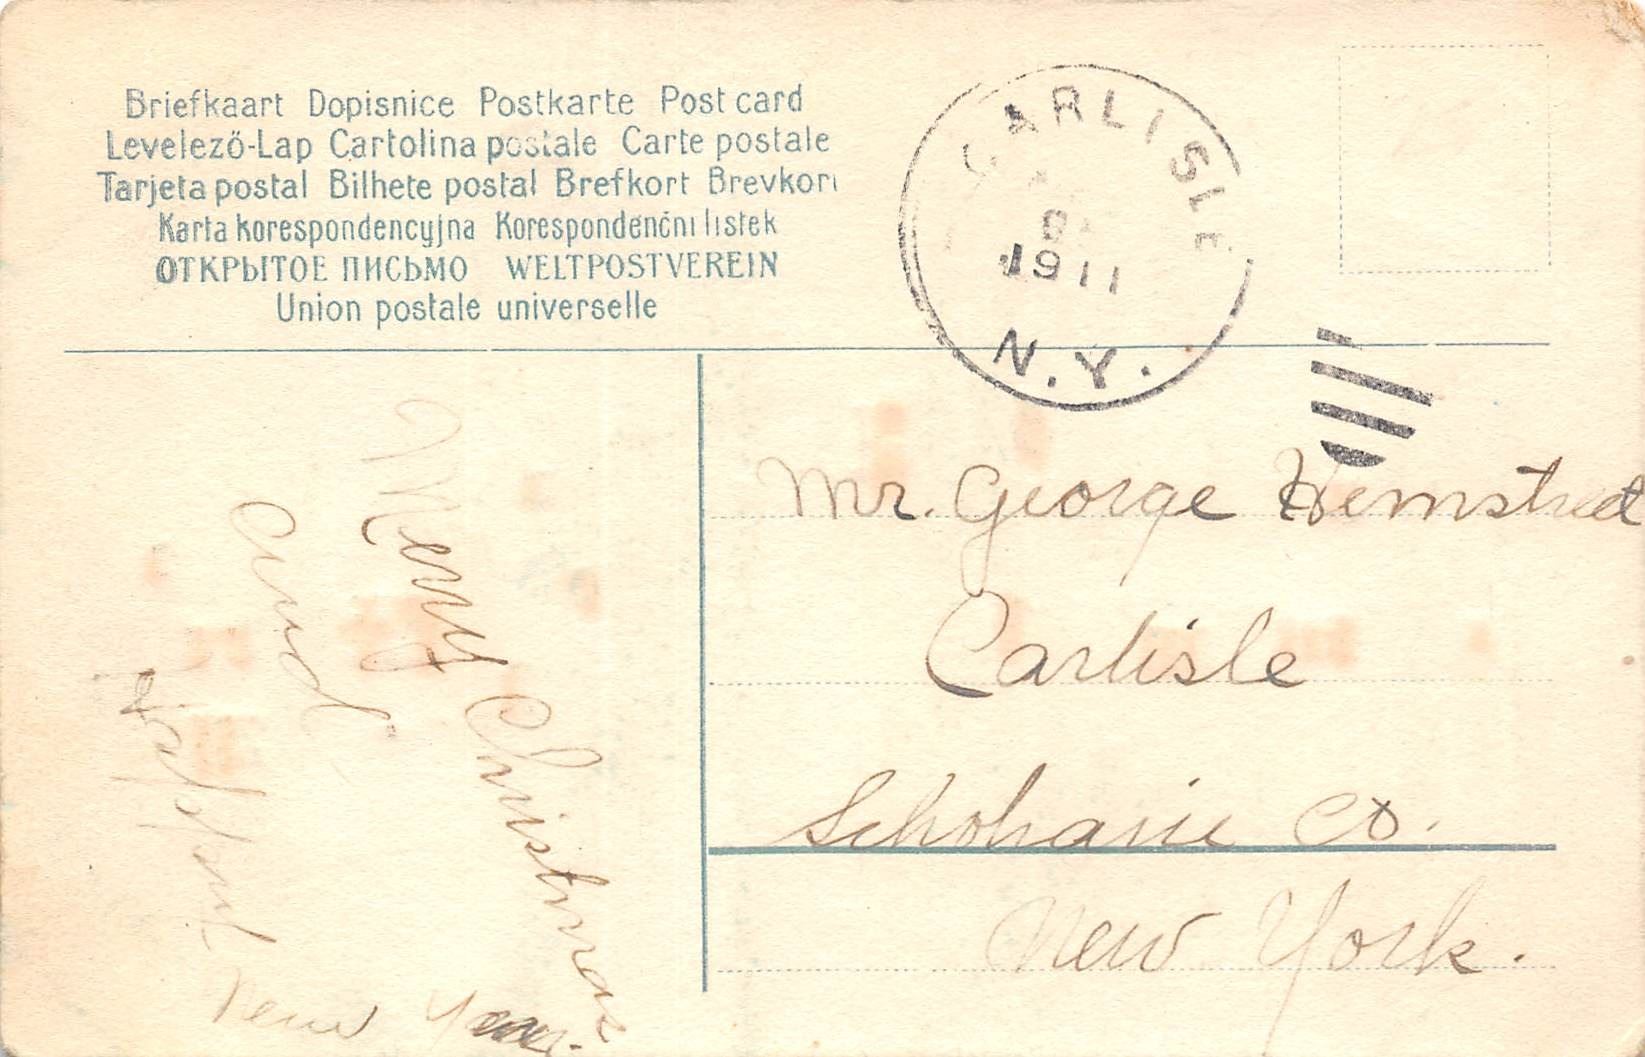 Briefkaart Dopisnice Postkarte Post card
Levelező-Lap Cartolina postale Carte postale
Tarjeta postal Bilhete postal Brefkort Brevkort
Karta korespondencyjna Korespondenčni listek
ОТКРЫТОЕ ПИСЬМО WELTPOSTVEREIN
Union postale universelle
CARLISLE
1911
N.Y.
Mr. George Hemstreet
Carlisle
Schoharie Co.
New York.
Merry Christmas
and
Happy
New Year.